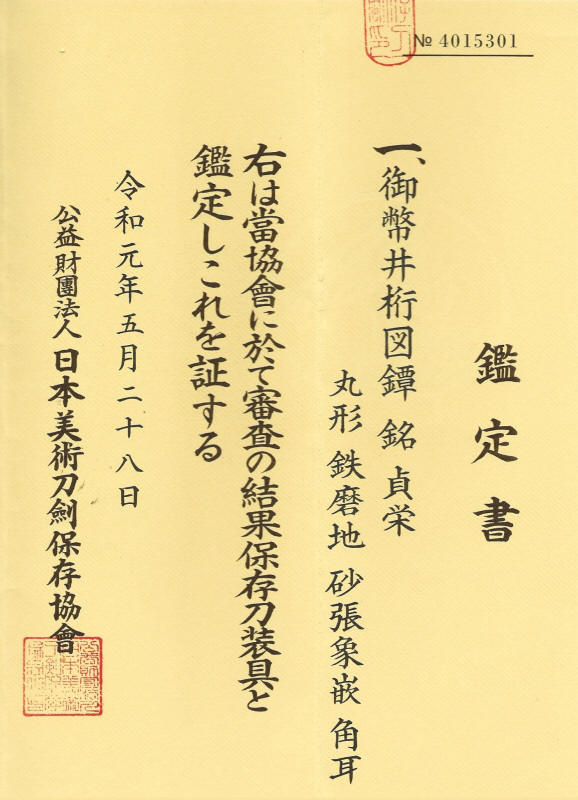 № 4015301
鑑定書
一、御幣井桁図鐔 銘 貞栄
丸形 鉄磨地 砂張象嵌 角耳
右は當協會に於て審査の結果保存刀装具と
鑑定しこれを証する
令和元年五月二十八日
公益財團法人 日本美術刀劍保存協會